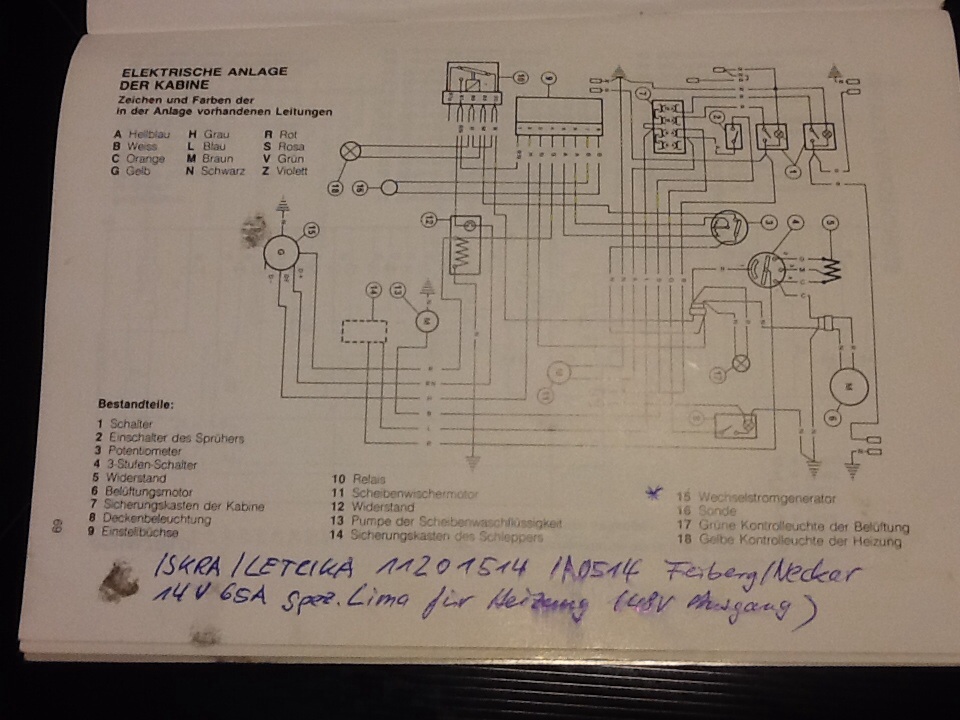 ELEKTRISCHE ANLAGE
DER KABINE
Zeichen und Farben der
in der Anlage vorhandenen Leitungen
A Hellblau H Grau R Rot
B Weiss L Blau S Rosa
C Orange M Braun V Grün
G Gelb N Schwarz Z Violett
Bestandteile:
1 Schalter
2 Einschalter des Sprühers
3 Potentiometer
4 3-Stufen-Schalter
5 Widerstand
6 Belüftungsmotor
7 Sicherungskasten der Kabine
8 Deckenbeleuchtung
9 Einstellbüchse
10 Relais
11 Scheibenwischermotor
12 Widerstand
13 Pumpe der Scheibenwaschflüssigkeit
14 Sicherungskasten des Schleppers
15 Wechselstromgenerator
16 Sonde
17 Grüne Kontrolleuchte der Belüftung
18 Gelbe Kontrolleuchte der Heizung
69
ISKRA/LETRIKA 11201514 IA0514 Feiberg/Neckar
14V 65A Spez. Lima für Heizung (48V Ausgang)